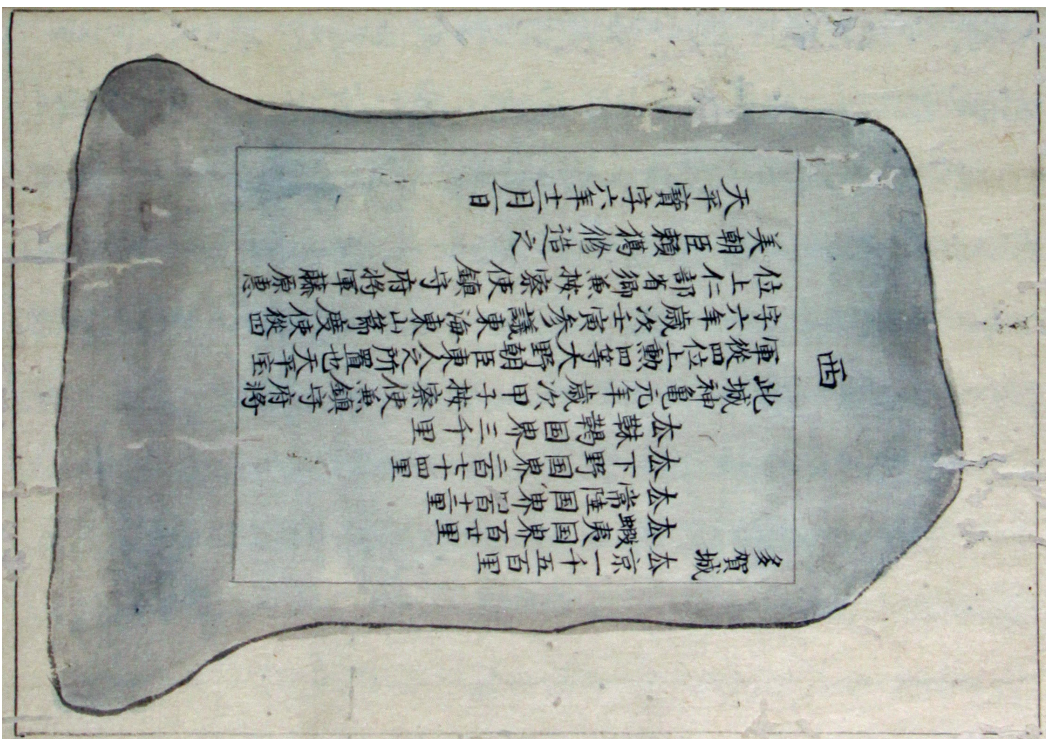 西
多賀城
去京一千五百里
去蝦夷国界百廿里
去常陸国界四百十二里
去下野国界二百七十四里
去靺鞨国界三千里
此城神龜元年歳次甲子按察使兼鎮守府將
軍從四位上勲四等大野朝臣東人之所置也天平宝
字六年歳次壬寅参議東海東山節度使從四
位上仁部省卿兼按察使鎮守府將軍藤原惠
美朝臣賴獦修造之
天平寶字六年十二月一日